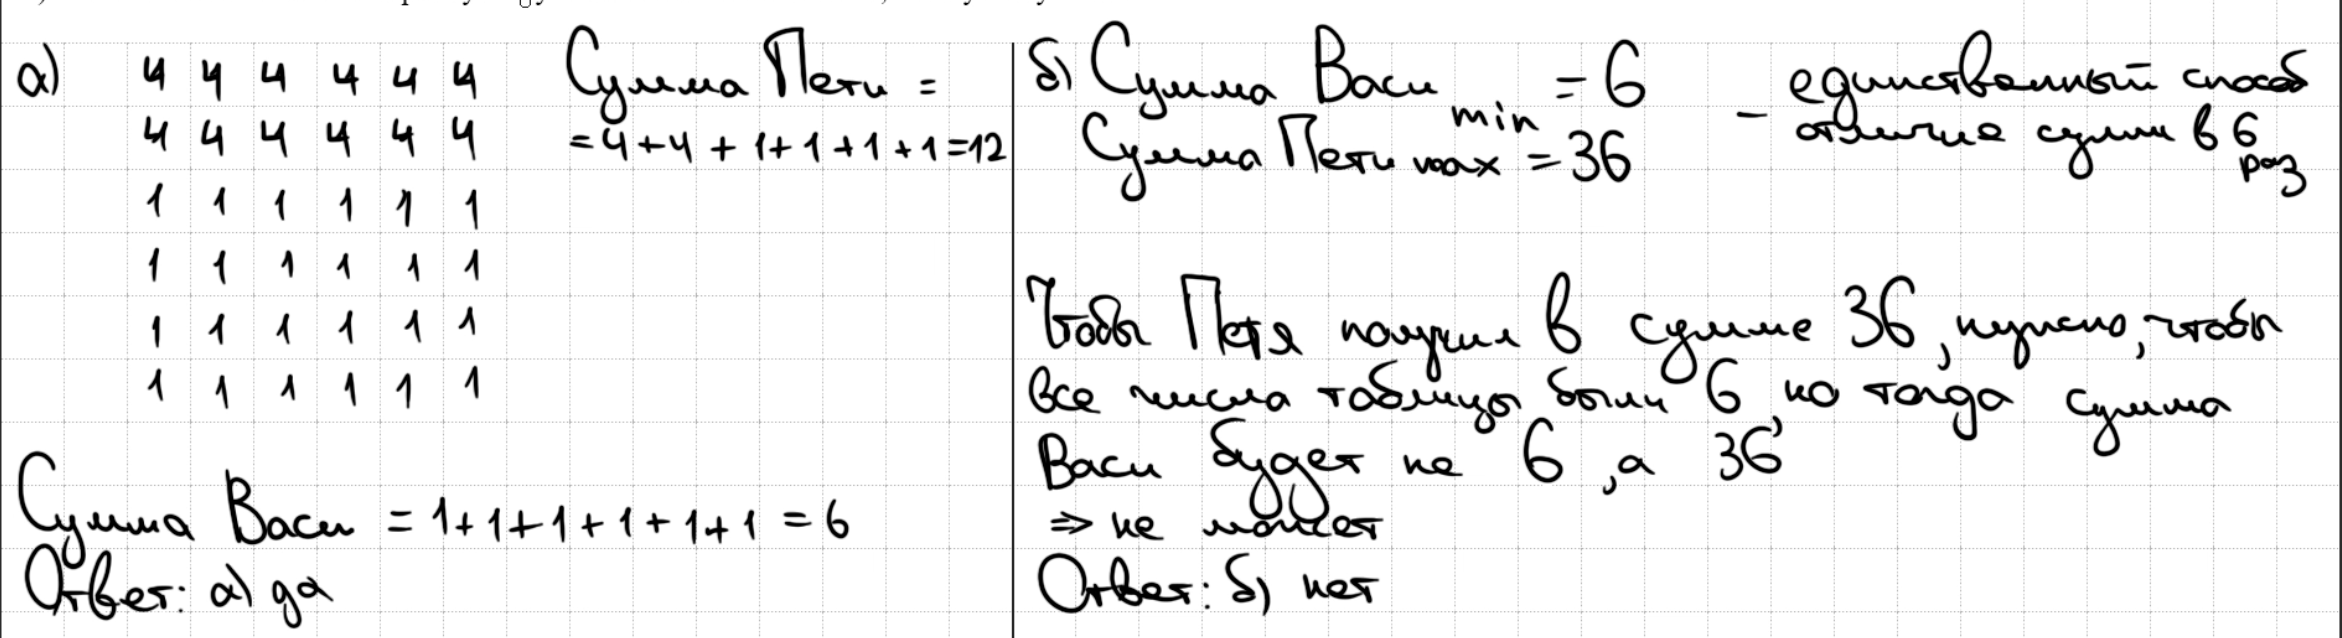 а) 4 4 4 4 4 4
4 4 4 4 4 4
1 1 1 1 1 1
1 1 1 1 1 1
1 1 1 1 1 1
1 1 1 1 1 1
Сумма Пети =
= 4 + 4 + 1 + 1 + 1 + 1 = 12
Сумма Васи = 1 + 1 + 1 + 1 + 1 + 1 = 6
Ответ: а) да
б) Сумма Васи min = 6
Сумма Пети max = 36
– единственный способ
отличие сумм в 6
раз
Чтобы Петя получил в сумме 36, нужно, чтобы
все числа таблицы были 6, но тогда сумма
Васи будет не 6, а 36
⇒ не может
Ответ: б) нет